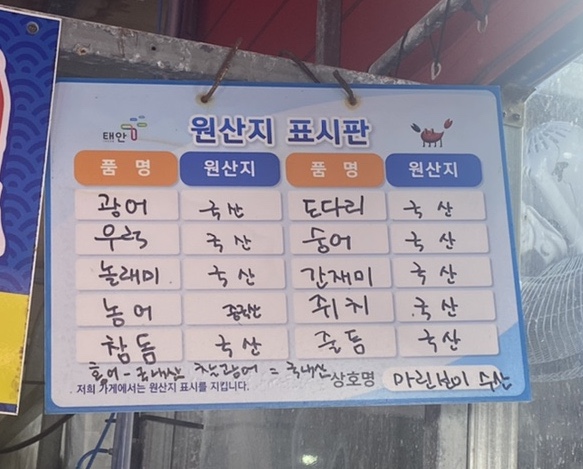 태안
원산지 표시판
품 명 원산지 품 명 원산지
광어 국산 도다리 국산
우럭 국산 숭어 국산
놀래미 국산 간재미 국산
농어 중국산 쥐치 국산
참돔 국산 줄돔 국산
홍어 - 국내산 찰광어 = 국내산
저희 가게에서는 원산지 표시를 지킵니다. 상호명 마린보이 수산